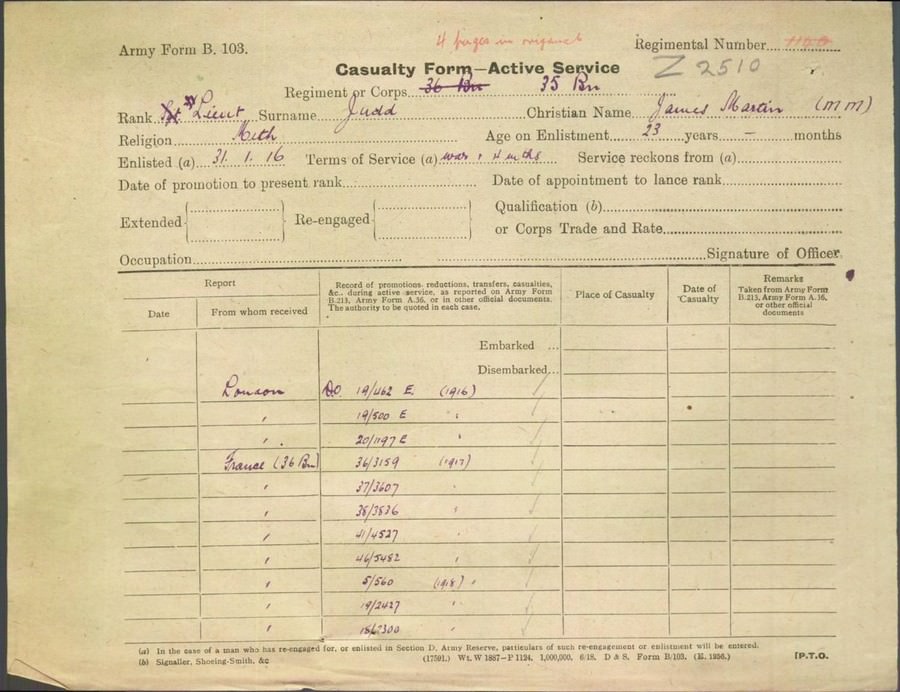 4 pages in original
Army Form B. 103.
Regimental Number
Z 2510
Casualty Form—Active Service
Regiment or Corps 36 Bn 35 Bn
Rank Sgt 2/ Lieut Surname Judd Christian Name James Martin (MM)
Religion Meth Age on Enlistment 23 years — months
Enlisted (a) 31. 1. 16 Terms of Service (a) war + 4 mths Service reckons from (a)
Date of promotion to present rank Date of appointment to lance rank
Extended Re-engaged Qualification (b)
or Corps Trade and Rate
Occupation Signature of Officer
Report
Date From whom received
Record of promotions, reductions, transfers, casualties, &c., during active service, as reported on Army Form B.213, Army Form A.36, or in other official documents. The authority to be quoted in each case.
Place of Casualty
Date of Casualty
Remarks
Taken from Army Form B.213, Army Form A.36, or other official documents
Embarked ...
Disembarked...
London DO. 19/462 E. (1916)
" 19/500 E "
" 20/1197 E "
France (36 Bn) 36/3159 (1917)
" 37/3607 "
" 38/3836 "
" 41/4527 "
" 46/5482 "
" 5/560 (1918) "
" 19/2427 "
" 18/2300 "
(a) In the case of a man who has re-engaged for, or enlisted in Section D, Army Reserve, particulars of such re-engagement or enlistment will be entered.
(b) Signaller, Shoeing-Smith, &c (17591.) Wt. W 1887—P 1124. 1,000,000. 6/18. D & S. Form B/103. (E. 1256.) [P.T.O.